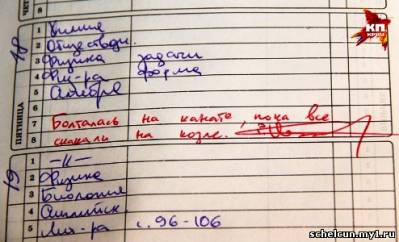 ЧЕТ
КП
18
1 Химия
2 Обществозн.
3 Физика задачи
4 Физ-ра форма
5
6
7 Болталась на канате, пока все
8 скакали на козле.
ПЯТНИЦА
19
1 -//-
2 Физика
3 Биология
4 Английск
5 Лит-ра с. 96-106
schelcun.my1.ru